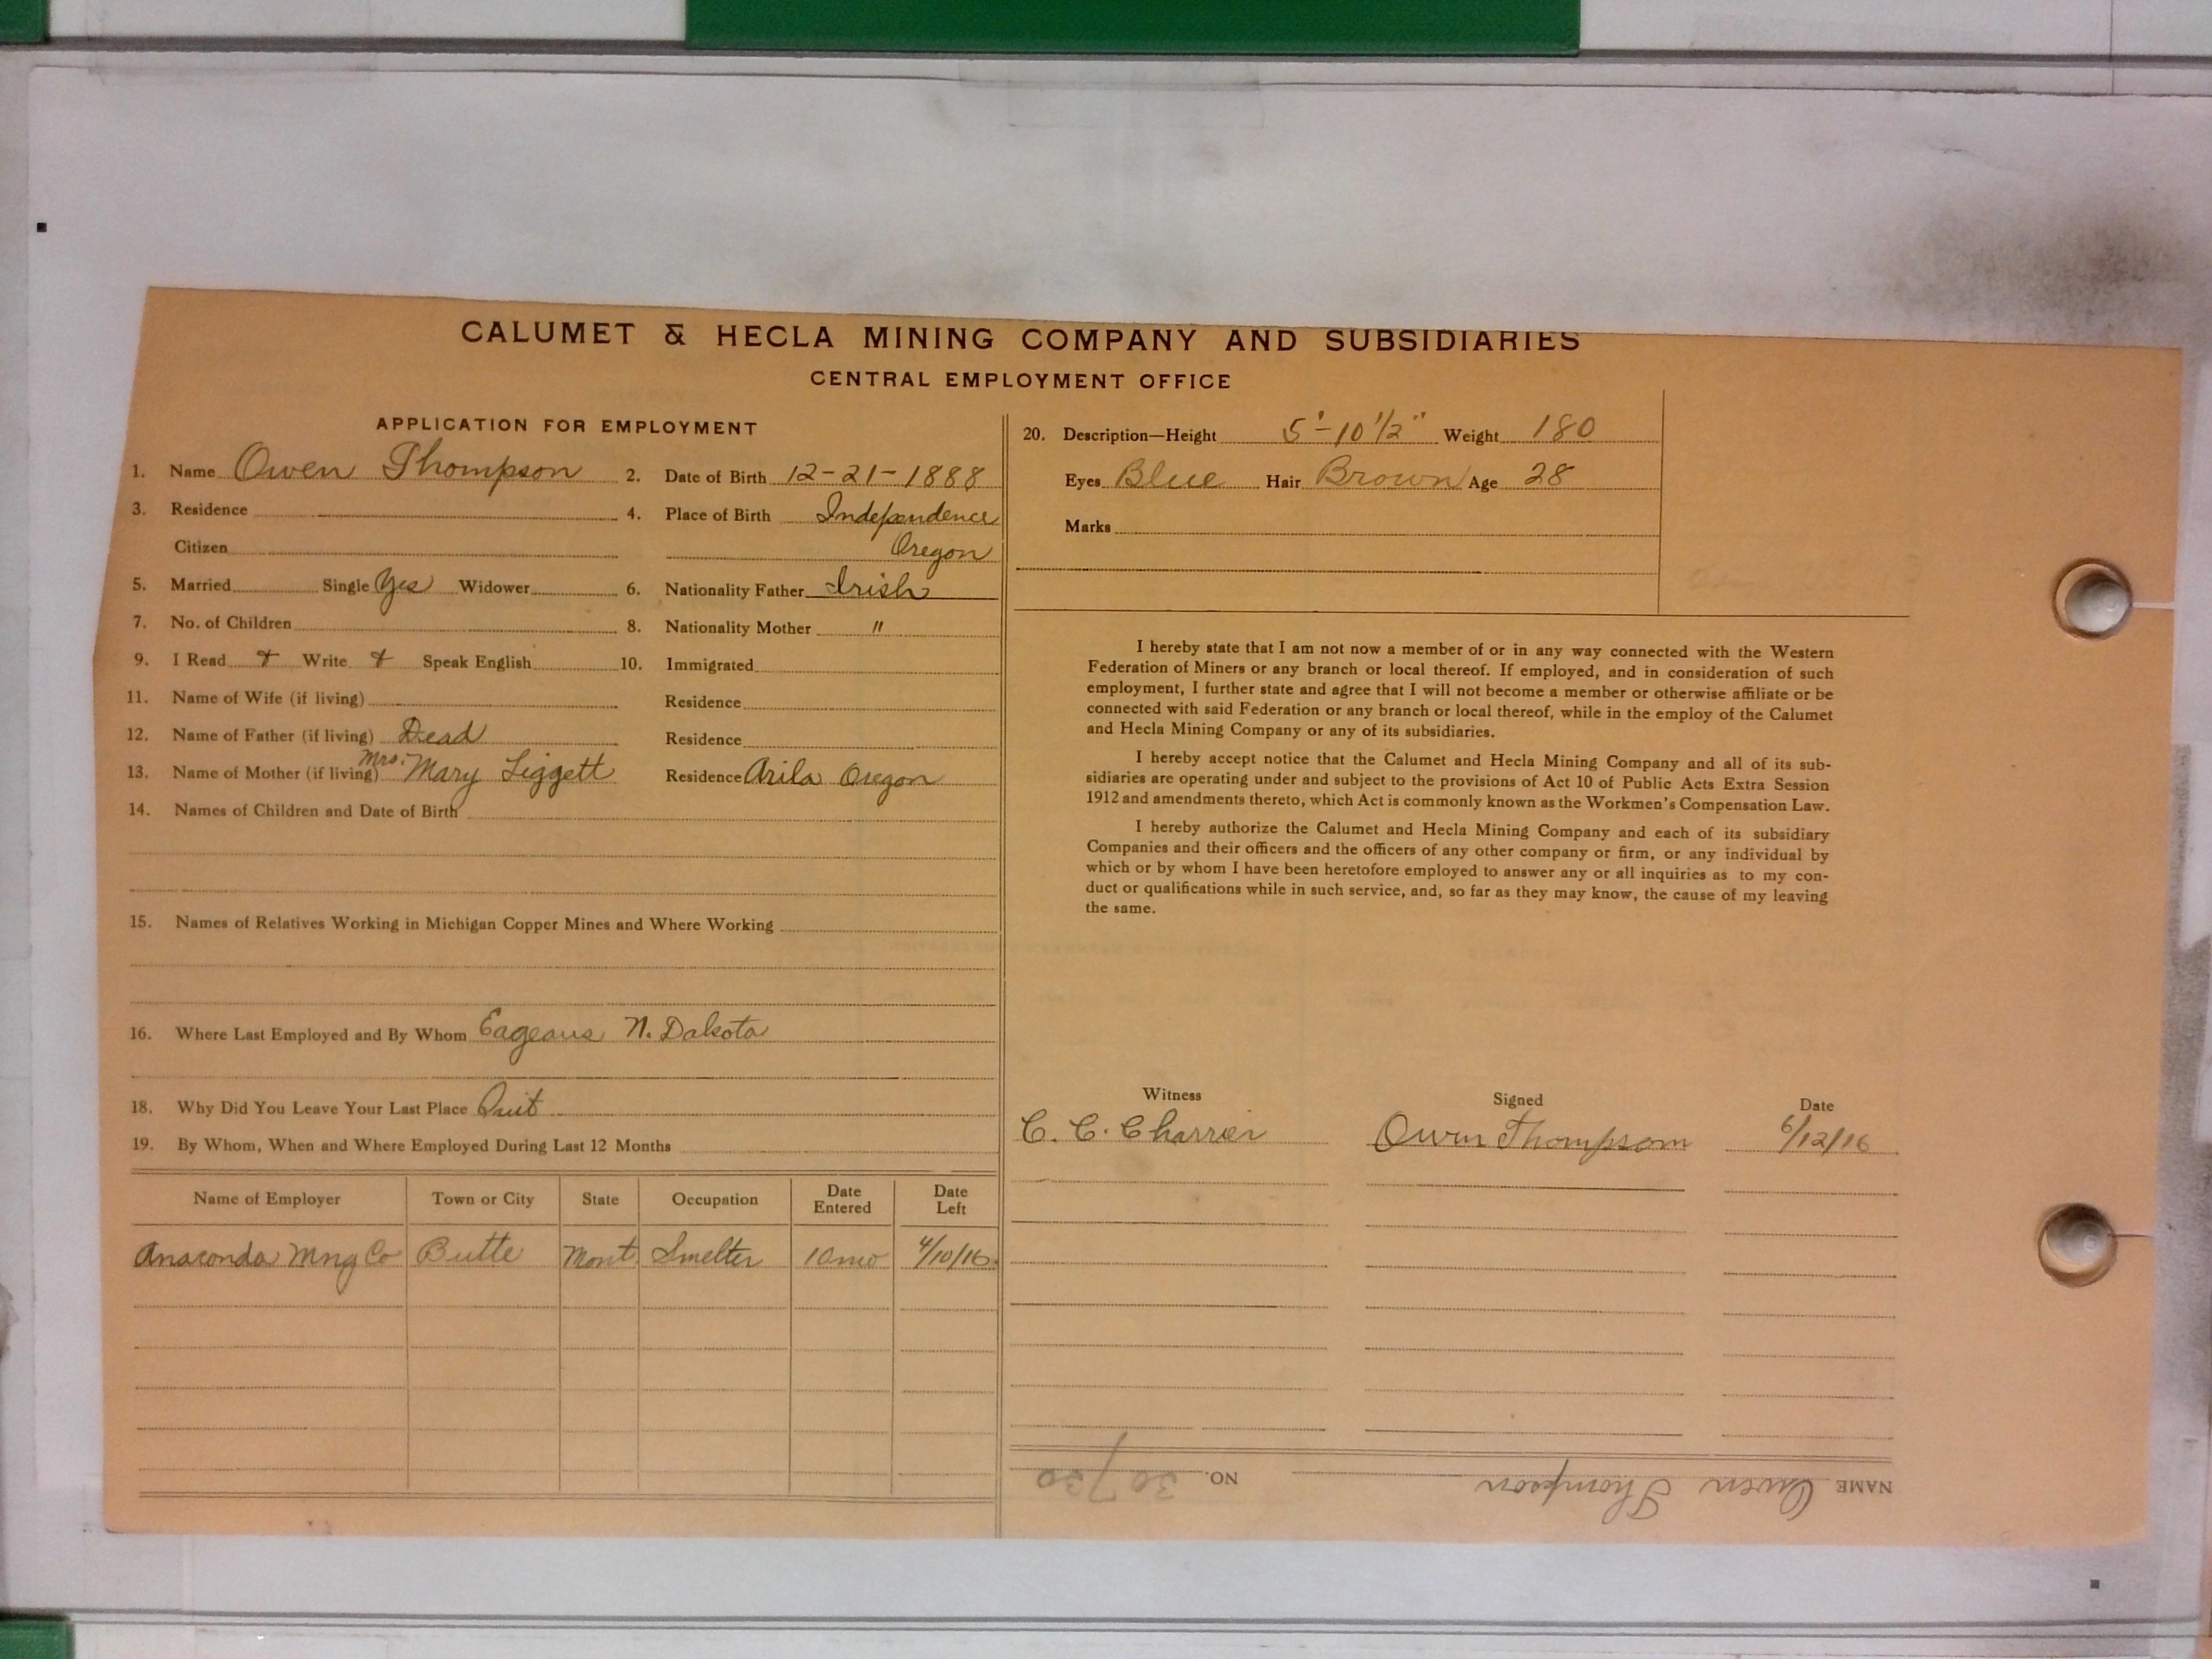 CALUMET & HECLA MINING COMPANY AND SUBSIDIARIES
CENTRAL EMPLOYMENT OFFICE
APPLICATION FOR EMPLOYMENT
1. Name Owen Thompson 2. Date of Birth 12-21-1888
3. Residence 4. Place of Birth Independence
Citizen Oregon
5. Married Single Yes Widower 6. Nationality Father Irish
7. No. of Children 8. Nationality Mother "
9. I Read + Write + Speak English 10. Immigrated
11. Name of Wife (if living) Residence
12. Name of Father (if living) Dead Residence
13. Name of Mother (if living) Mrs. Mary Liggett Residence Arila Oregon
14. Names of Children and Date of Birth
15. Names of Relatives Working in Michigan Copper Mines and Where Working
16. Where Last Employed and By Whom N. Dakota
18. Why Did You Leave Your Last Place Quit
19. By Whom, When and Where Employed During Last 12 Months
Name of Employer Town or City State Occupation Date Entered Date Left
Anaconda Mng Co Butte Mont. Smelter 10 mo 4/10/16
20. Description—Height 5'-10 1/2" Weight 180
Eyes Blue Hair Brown Age 28
Marks
I hereby state that I am not now a member of or in any way connected with the Western
Federation of Miners or any branch or local thereof. If employed, and in consideration of such
employment, I further state and agree that I will not become a member or otherwise affiliate or be
connected with said Federation or any branch or local thereof, while in the employ of the Calumet
and Hecla Mining Company or any of its subsidiaries.
I hereby accept notice that the Calumet and Hecla Mining Company and all of its sub-
sidiaries are operating under and subject to the provisions of Act 10 of Public Acts Extra Session
1912 and amendments thereto, which Act is commonly known as the Workmen's Compensation Law.
I hereby authorize the Calumet and Hecla Mining Company and each of its subsidiary
Companies and their officers and the officers of any other company or firm, or any individual by
which or by whom I have been heretofore employed to answer any or all inquiries as to my con-
duct or qualifications while in such service, and, so far as they may know, the cause of my leaving
the same.
Witness Signed Date
C. C. Charrier Owen Thompson 6/12/16
NAME Owen Thompson NO. 30730